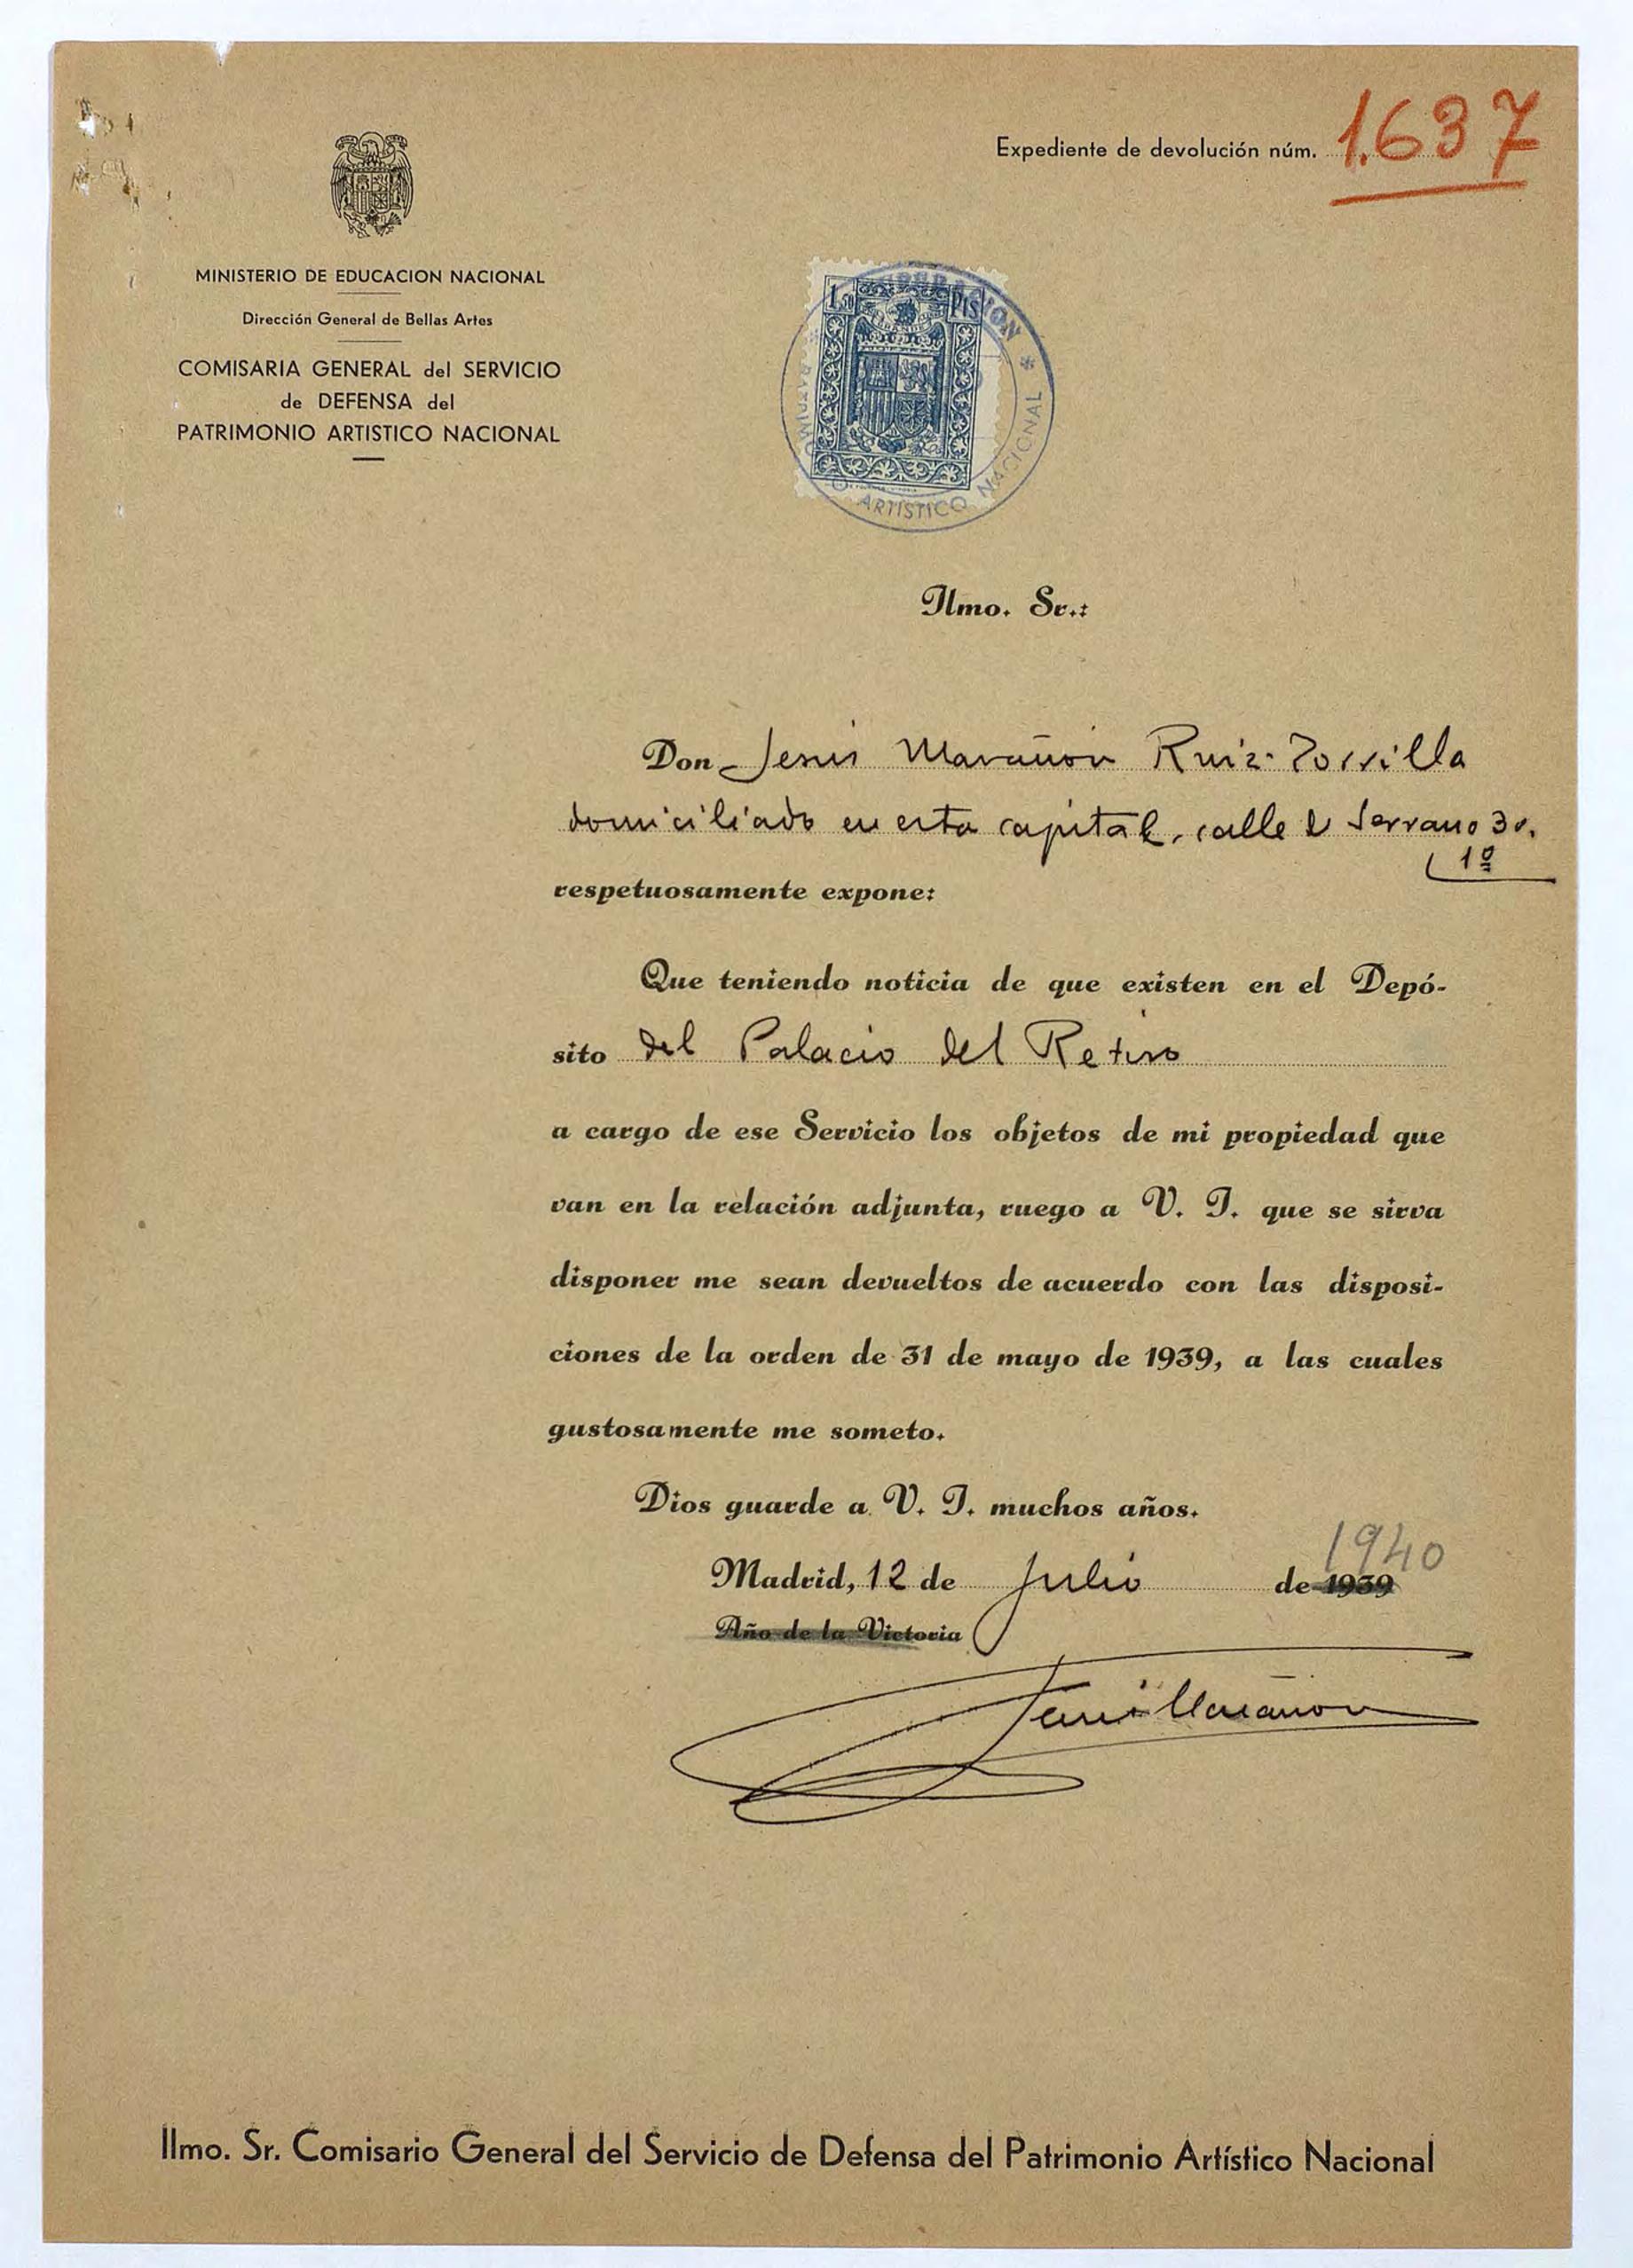 Expediente de devolución núm. 1.637
MINISTERIO DE EDUCACION NACIONAL
Dirección General de Bellas Artes
COMISARIA GENERAL del SERVICIO
de DEFENSA del
PATRIMONIO ARTISTICO NACIONAL
PTS
ARTISTICO NACIONAL
Ilmo. Sr.:
Don Jesús Marañón Ruiz-Zorrilla
domiciliado en esta capital, calle de Serrano 30,
1º
respetuosamente expone:
Que teniendo noticia de que existen en el Depó-
sito del Palacio del Retiro
a cargo de ese Servicio los objetos de mi propiedad que
van en la relación adjunta, ruego a V. I. que se sirva
disponer me sean devueltos de acuerdo con las disposi-
ciones de la orden de 31 de mayo de 1939, a las cuales
gustosamente me someto.
Dios guarde a V. I. muchos años.
1940
Madrid, 12 de Julio de 1939
Año de la Victoria
Jesús Marañón
Ilmo. Sr. Comisario General del Servicio de Defensa del Patrimonio Artístico Nacional